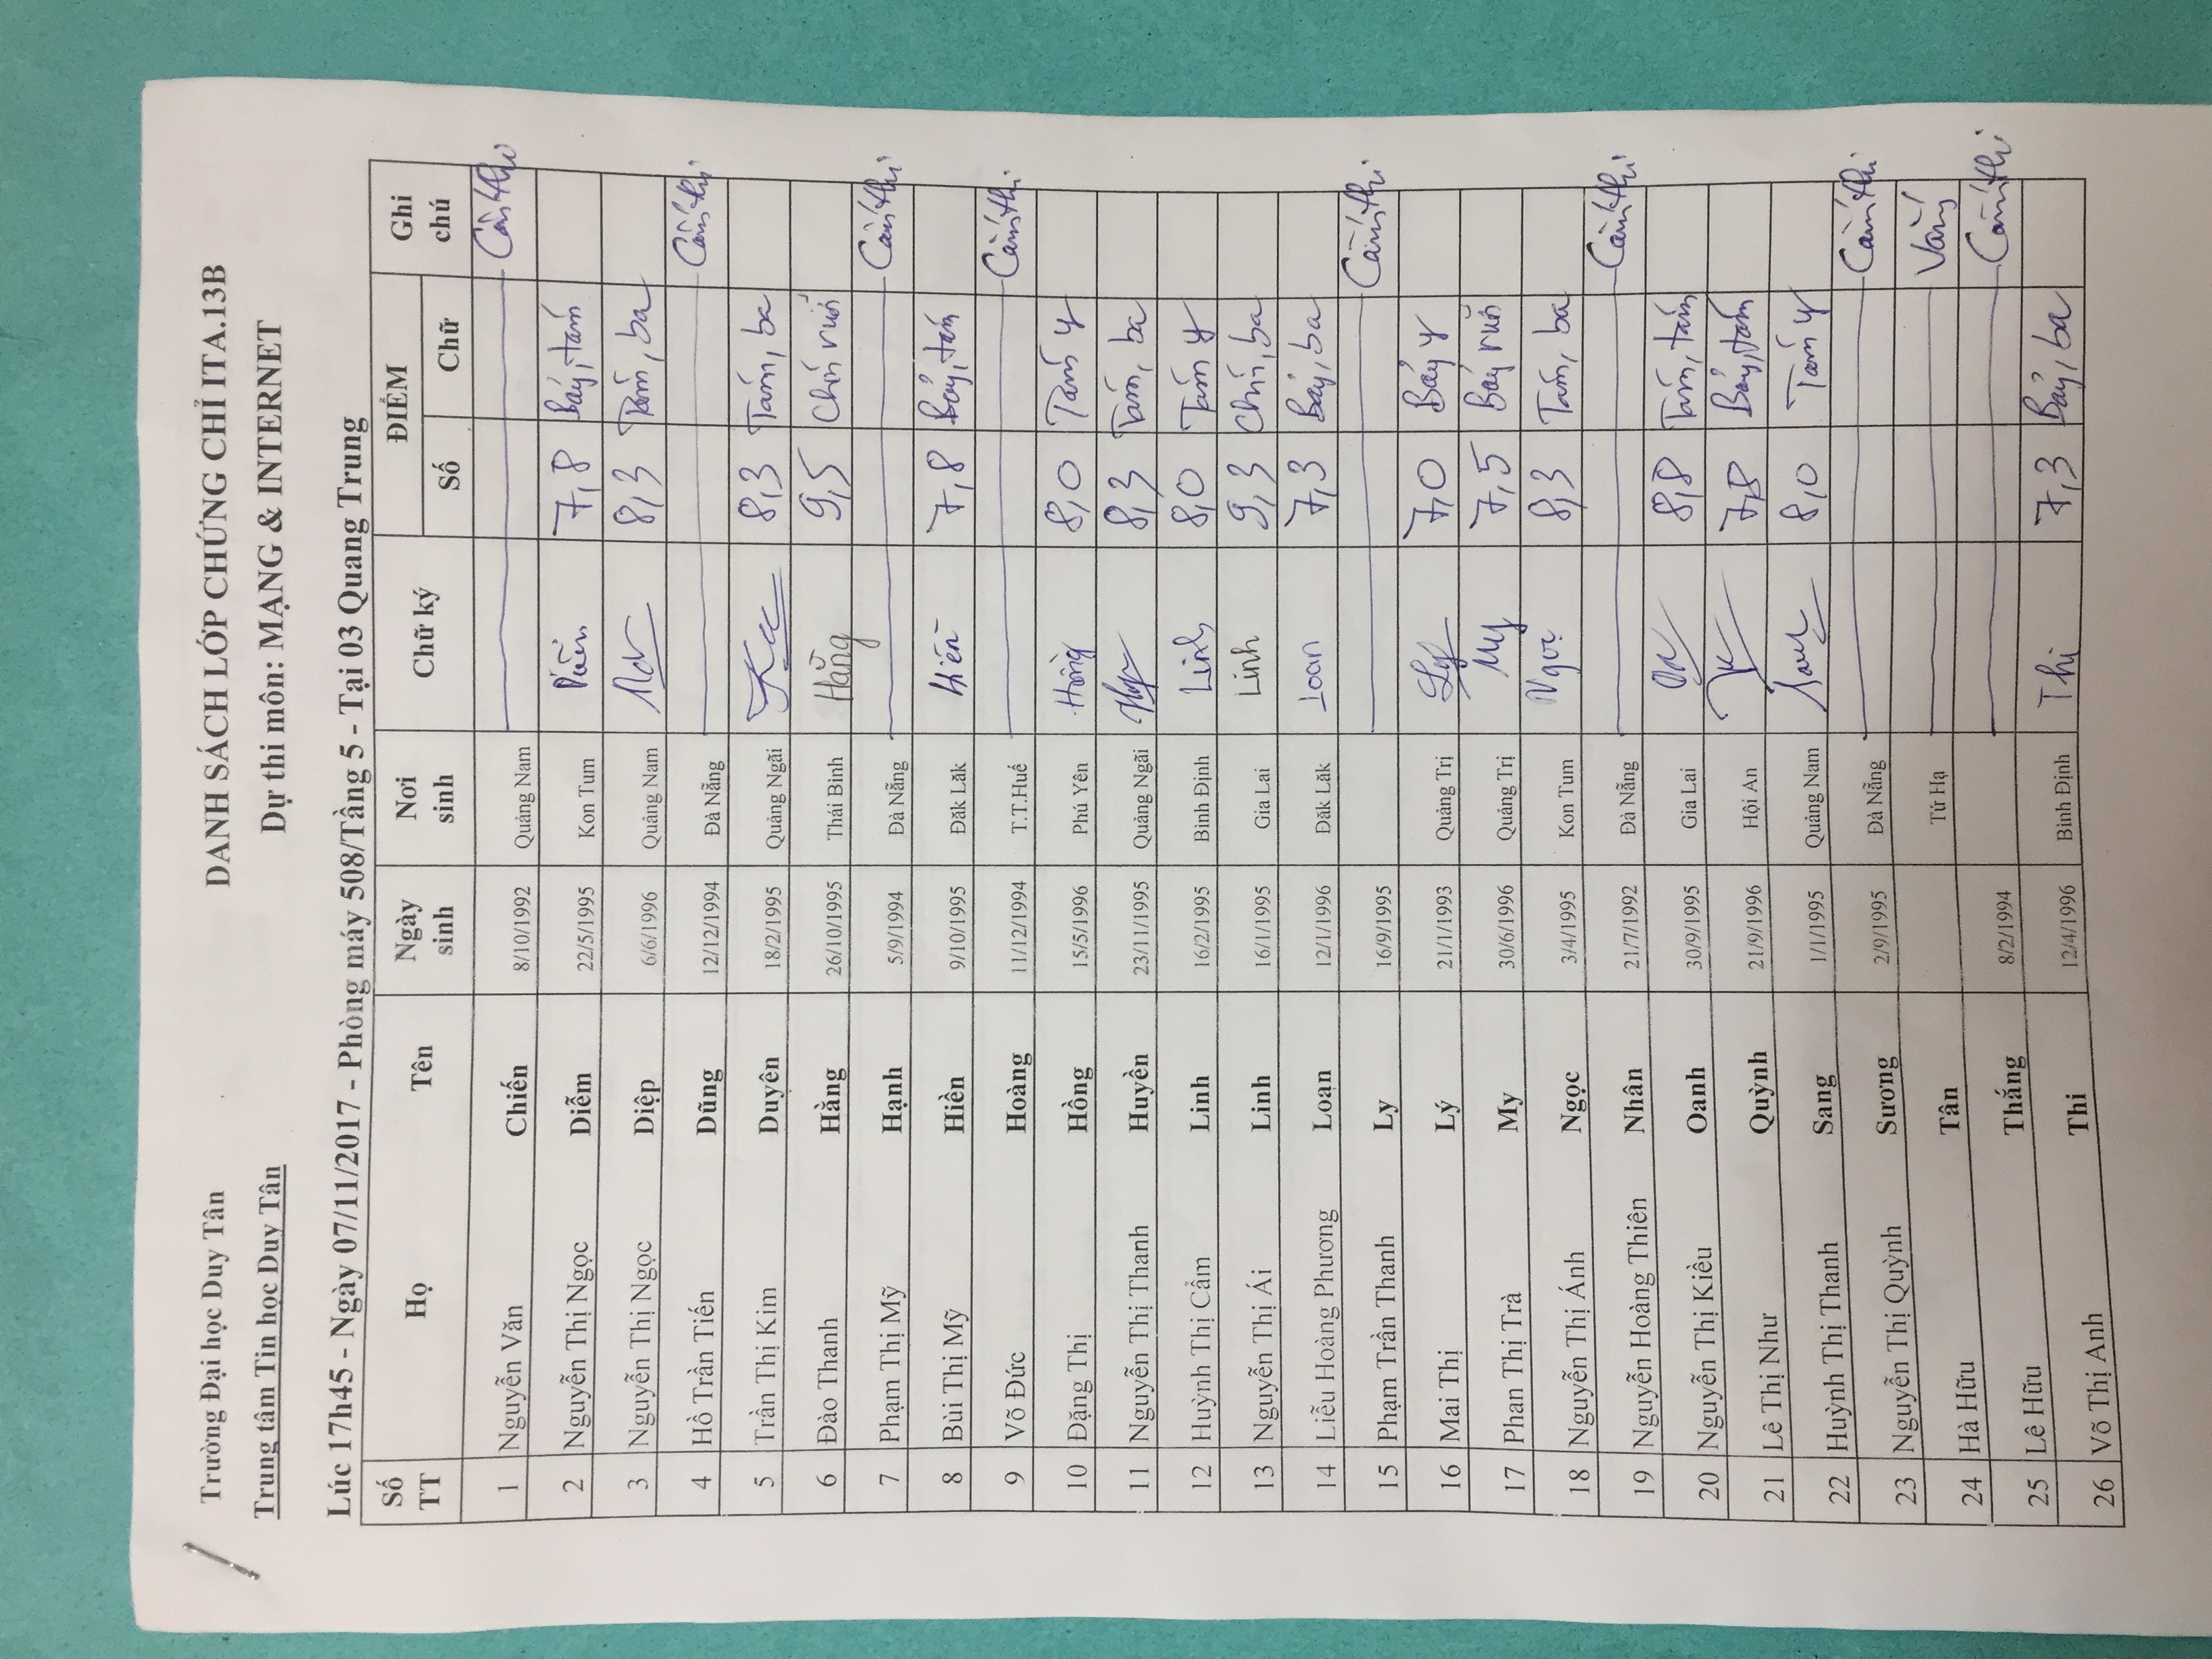 Trường Đại học Duy Tân DANH SÁCH LỚP CHỨNG CHỈ ITA.13B
Trung tâm Tin học Duy Tân Dự thi môn: MẠNG & INTERNET
Lúc 17h45 - Ngày 07/11/2017 - Phòng máy 508/Tầng 5 - Tại 03 Quang Trung
Số TT Họ Tên Ngày sinh Nơi sinh Chữ ký ĐIỂM Số Chữ Ghi chú
1 Nguyễn Văn Chiến 8/10/1992 Quảng Nam Cấm thi
2 Nguyễn Thị Ngọc Diễm 22/5/1995 Kon Tum 7,8 Bảy, tám
3 Nguyễn Thị Ngọc Diệp 6/6/1996 Quảng Nam 8,3 Tám, ba
4 Hồ Trần Tiến Dũng 12/12/1994 Đà Nẵng Cấm thi
5 Trần Thị Kim Duyên 18/2/1995 Quảng Ngãi 8,3 Tám, ba
6 Đào Thanh Hằng 26/10/1995 Thái Bình Hằng 9,5 Chín rưỡi
7 Phạm Thị Mỹ Hạnh 5/9/1994 Đà Nẵng Cấm thi
8 Bùi Thị Mỹ Hiền 9/10/1995 Đăk Lăk Hiền 7,8 Bảy, tám
9 Võ Đức Hoàng 11/12/1994 T.T.Huế Cấm thi
10 Đặng Thị Hồng 15/5/1996 Phú Yên Hồng 8,0 Tám y
11 Nguyễn Thị Thanh Huyền 23/11/1995 Quảng Ngãi 8,3 Tám, ba
12 Huỳnh Thị Cẩm Linh 16/2/1995 Bình Định Linh 8,0 Tám y
13 Nguyễn Thị Ái Linh 16/1/1995 Gia Lai Linh 9,3 Chín, ba
14 Liễu Hoàng Phương Loan 12/1/1996 Đăk Lăk Loan 7,3 Bảy, ba
15 Phạm Trần Thanh Ly 16/9/1995 Cấm thi
16 Mai Thị Lý 21/1/1993 Quảng Trị Lý 7,0 Bảy y
17 Phan Thị Trà My 30/6/1996 Quảng Trị My 7,5 Bảy rưỡi
18 Nguyễn Thị Ánh Ngọc 3/4/1995 Kon Tum Ngọc 8,3 Tám, ba
19 Nguyễn Hoàng Thiên Nhân 21/7/1992 Đà Nẵng Cấm thi
20 Nguyễn Thị Kiều Oanh 30/9/1995 Gia Lai 8,8 Tám, tám
21 Lê Thị Như Quỳnh 21/9/1996 Hội An 7,8 Bảy, tám
22 Huỳnh Thị Thanh Sang 1/1/1995 Quảng Nam 8,0 Tám y
23 Nguyễn Thị Quỳnh Sương 2/9/1995 Đà Nẵng Cấm thi
24 Hà Hữu Tân Tứ Hạ Vắng
25 Lê Hữu Thắng 8/2/1994 Cấm thi
26 Võ Thị Anh Thi 12/4/1996 Bình Định Thi 7,3 Bảy, ba